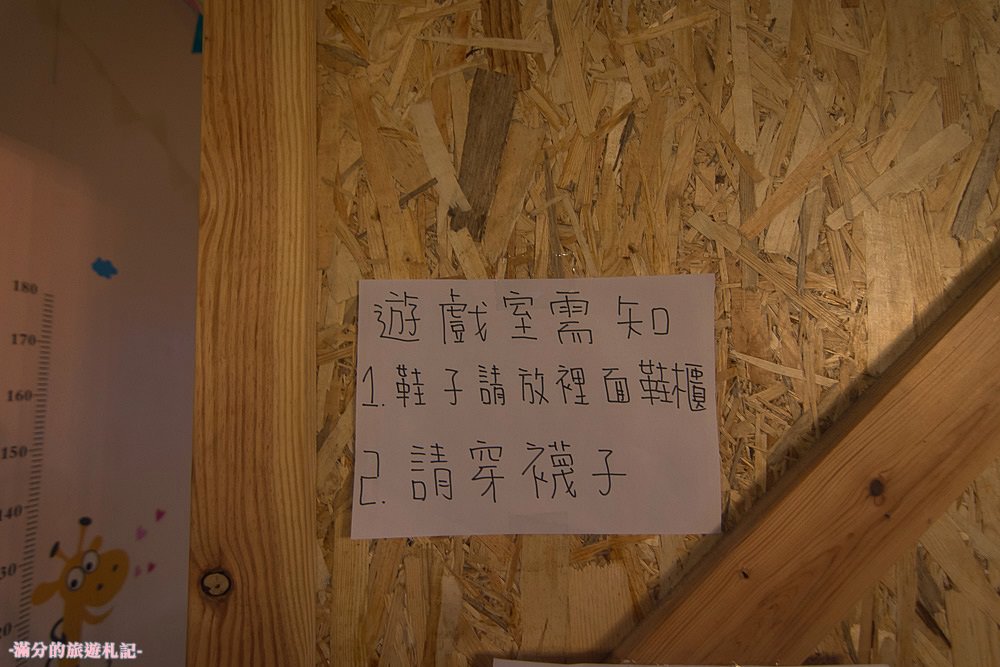 遊戲室需知
1.鞋子請放裡面鞋櫃
2.請穿襪子
180
170
160
150
140
30
20
-滿分的旅遊札記-